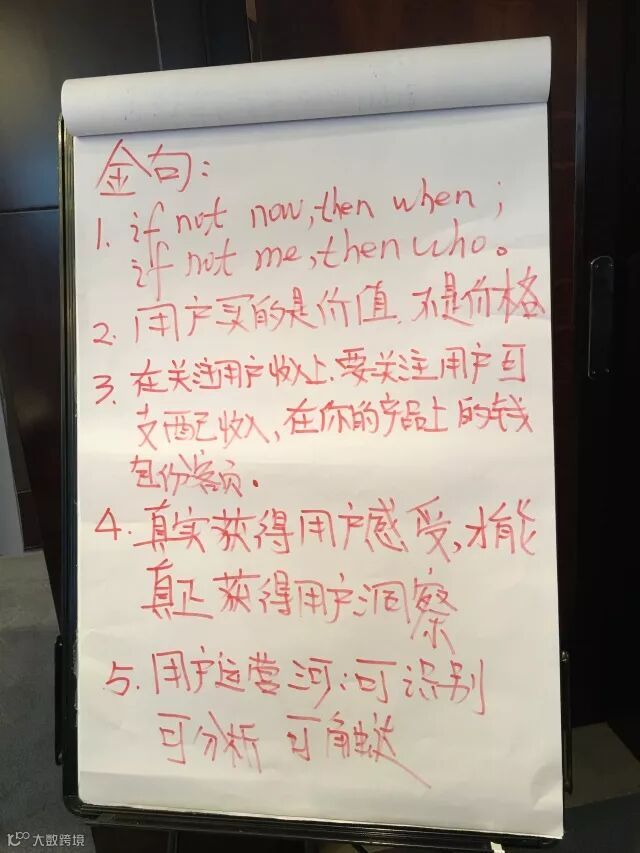 金句:
1. if not now, then when;
if not me, then who。
2. 用户买的是价值、不是价格
3. 在关注用户收入上、要关注用户可
支配收入,在你的产品上的钱
包份额。
4. 真实获得用户感受,才能
真正获得用户洞察
5. 用户运营河:可识别
可分析 可触达
大数跨境